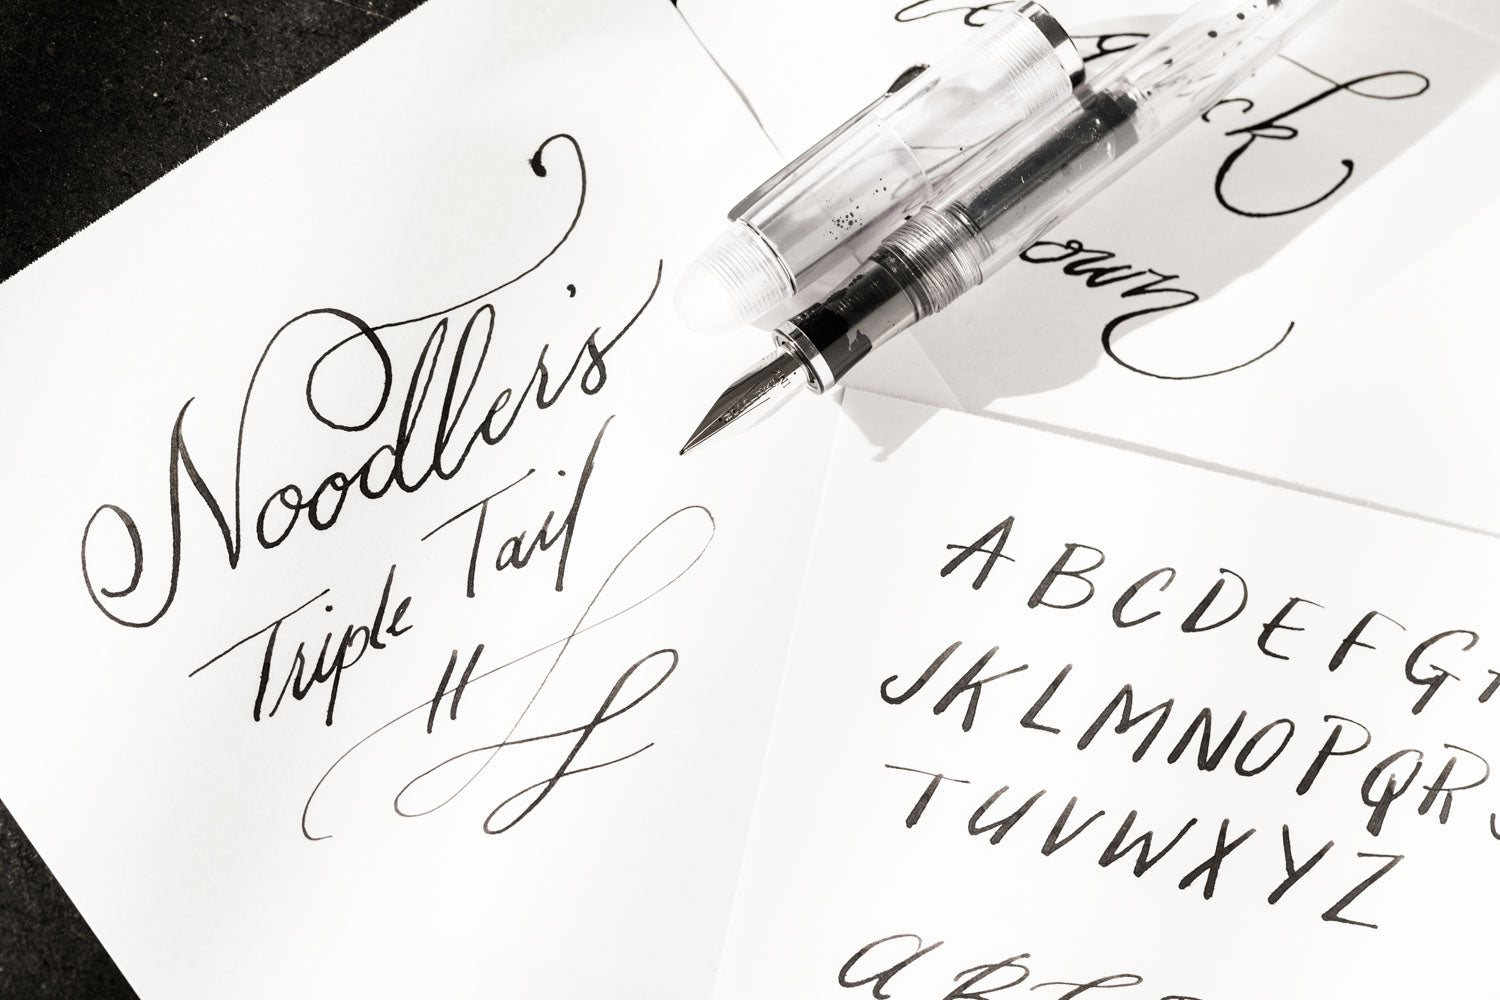 Noodler's
Triple Tail
ck
own
A B C D E F G
J K L M N O P Q R
T U V W X Y Z
a B